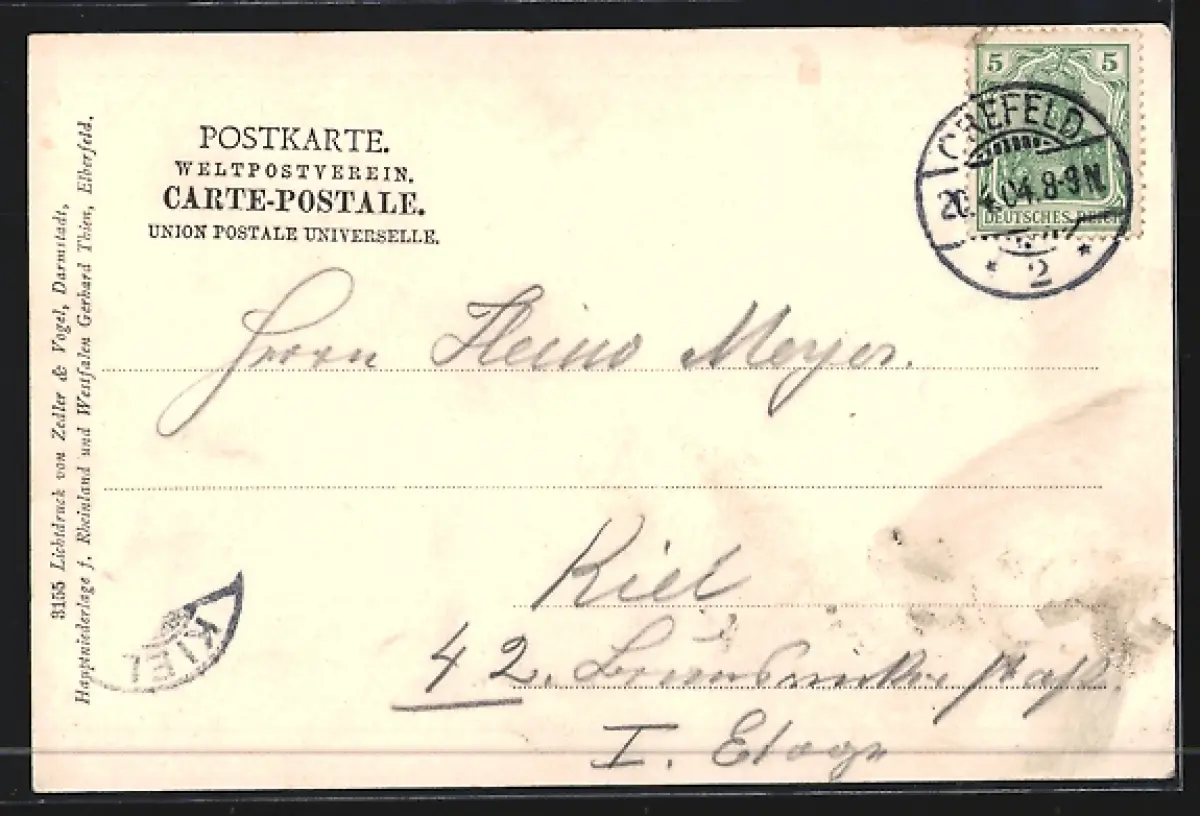 POSTKARTE.
WELTPOSTVEREIN.
CARTE-POSTALE.
UNION POSTALE UNIVERSELLE.
5 5
DEUTSCHES REICH
CREFELD
20.4.04.8-9N.
* 2 *
Herrn Heino Meyer.
Kiel
42.
I. Etage
KIEL
3155 Lichtdruck von Zedler & Vogel, Darmstadt,
Hauptniederlage f. Rheinland und Westfalen Gerhard Thien, Elberfeld.